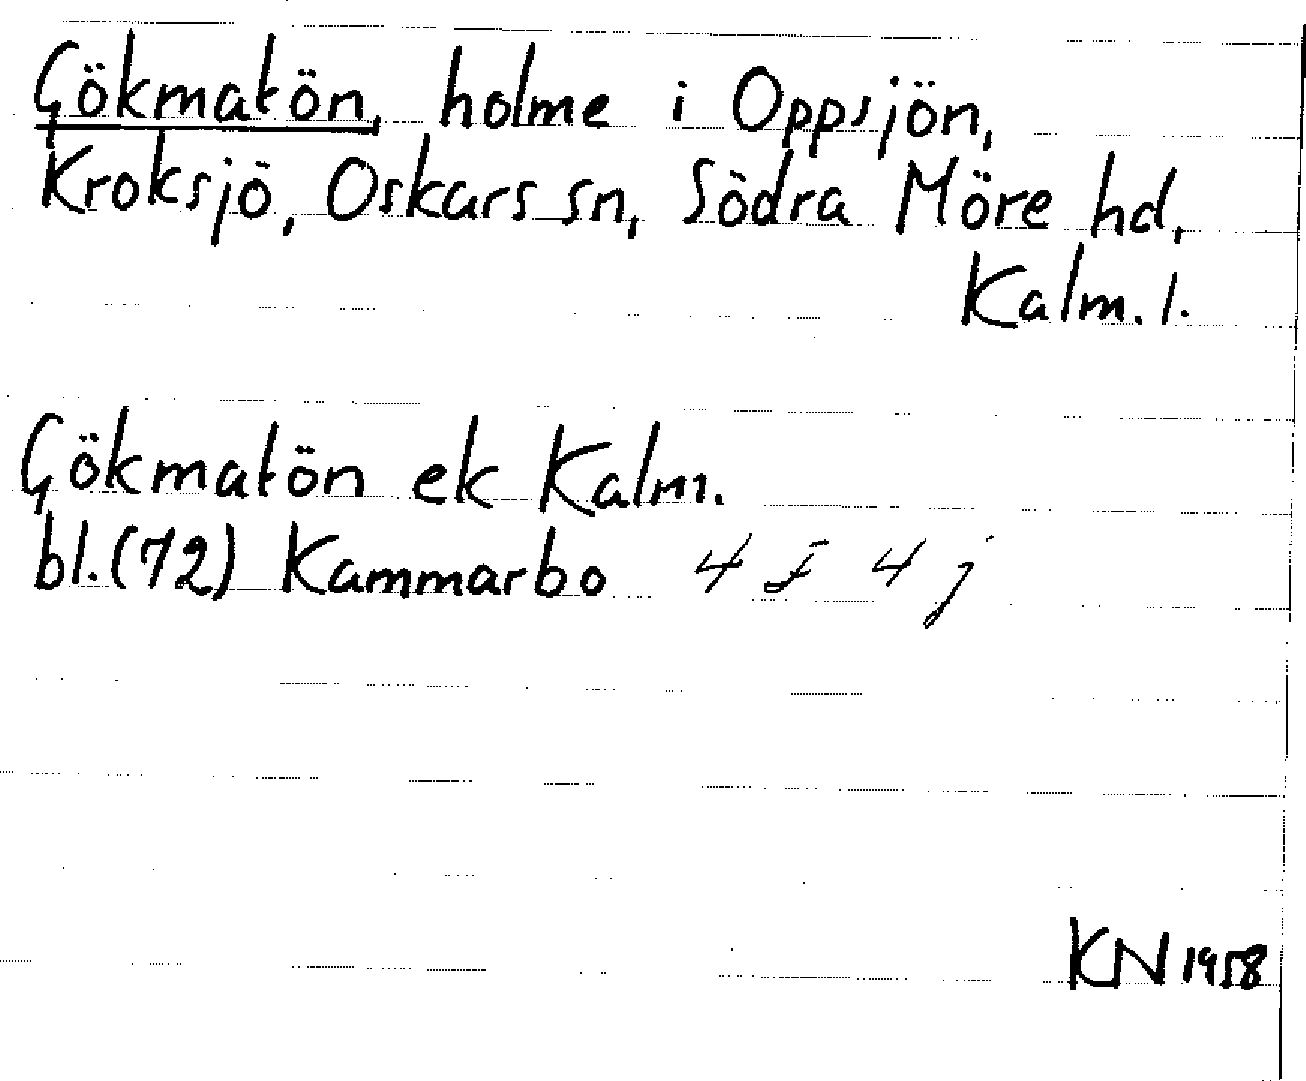 Gökmatön, holme i Oppsjön,
Kroksjö, Oskars sn, Södra Möre hd,
Kalm. l.
Gökmatön ek Kalm.
bl.(72) Kammarbo 4 f 4 j
KN 1958